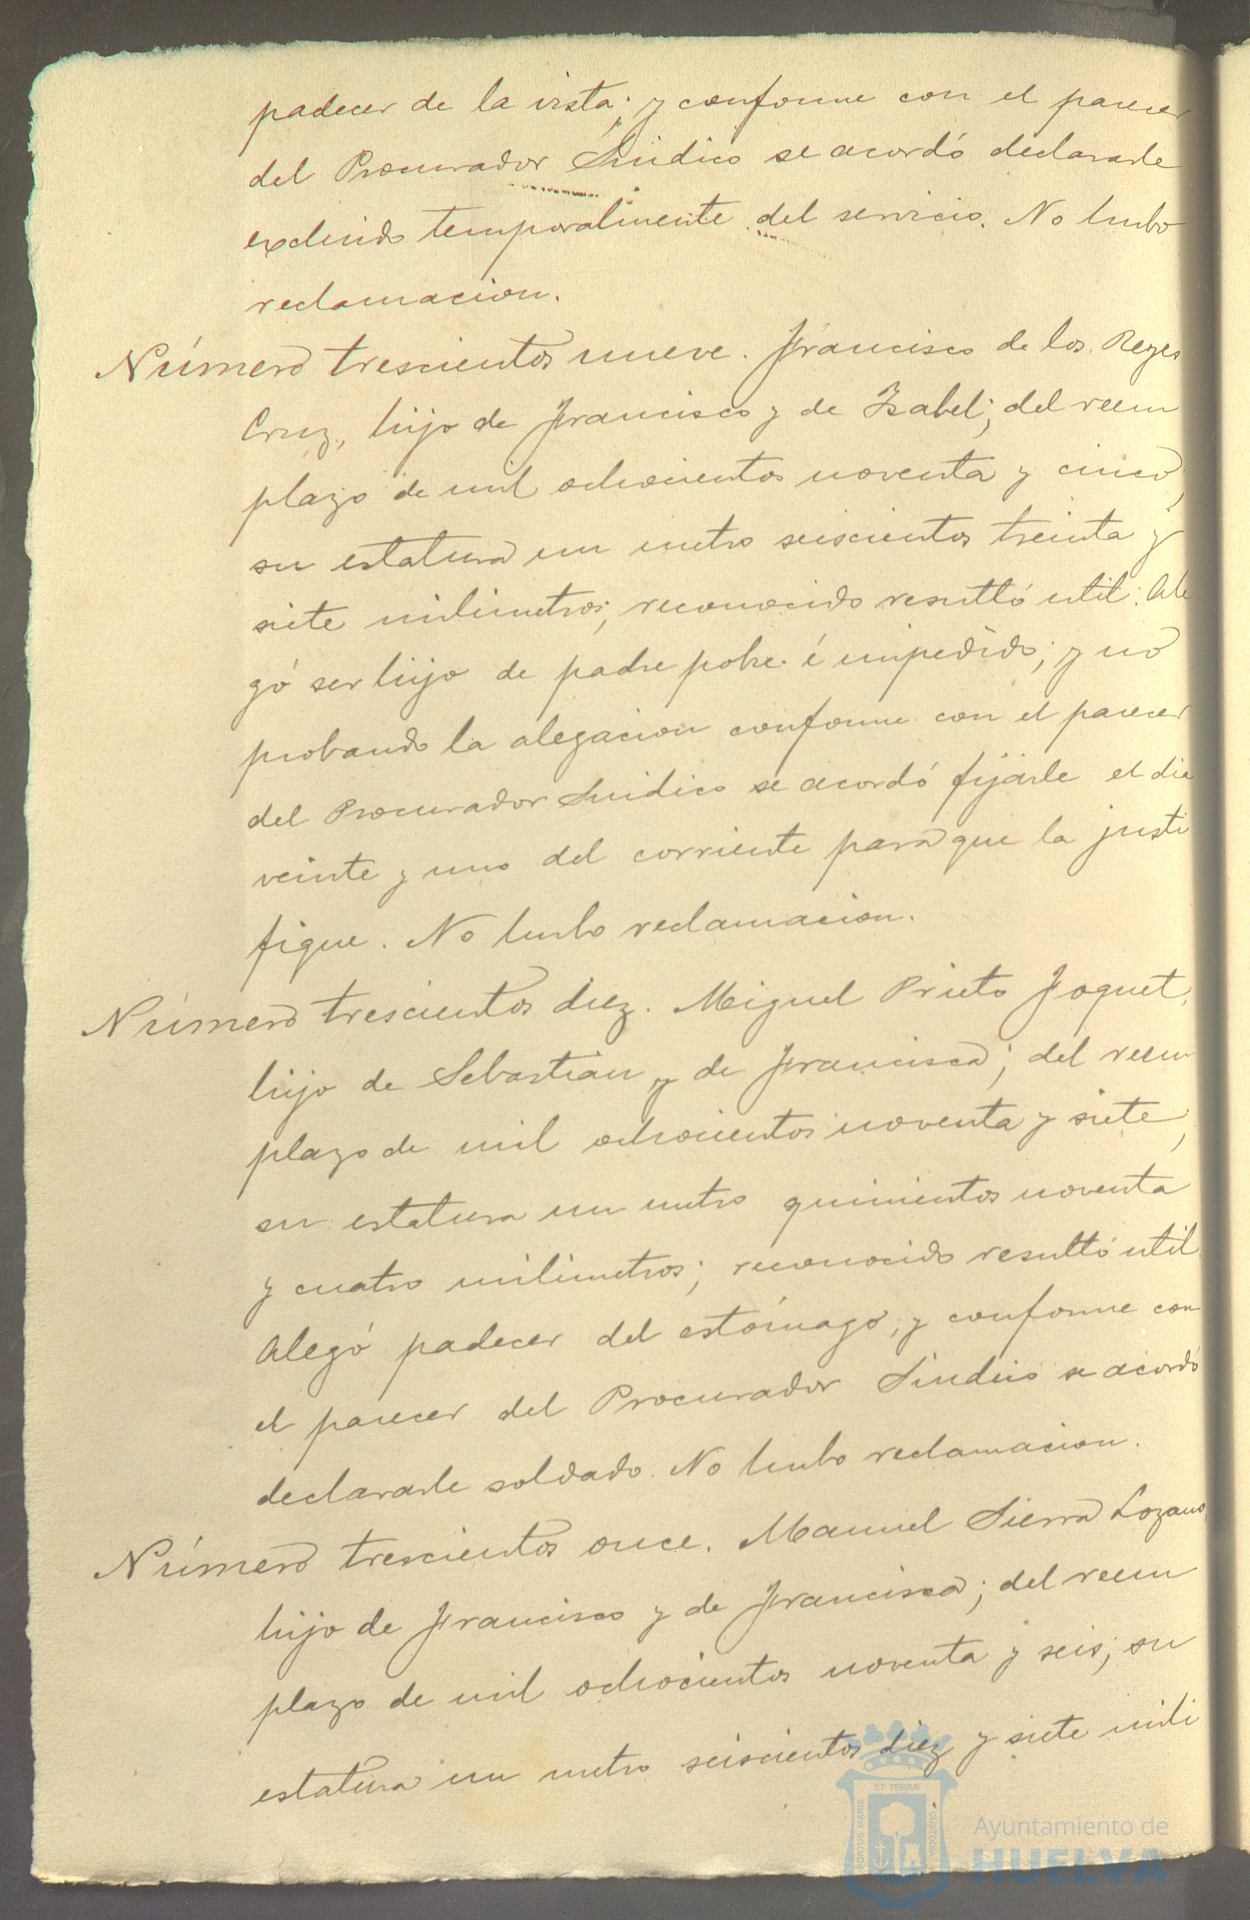 padecer de la vista; y conforme con el parecer
del Procurador Sindico se acordó declararle
excluido temporalmente del servicio. No hubo
reclamacion.
Número trescientos nueve. Francisco de los Reyes
Cruz, hijo de Francisco y de Isabel; del reem
plazo de mil ochocientos noventa y cinco,
su estatura un metro seiscientos treinta y
siete milimetros; reconocido resultó util. Ale
gó ser hijo de padre pobre é impedido; y no
probando la alegacion conforme con el parecer
del Procurador Sindico se acordó fijarle el dia
veinte y uno del corriente para que la justi
fique. No hubo reclamacion.
Número trescientos diez. Miguel Prieto Joquet,
hijo de Sebastián y de Francisca; del reem
plazo de mil ochocientos noventa y siete,
su estatura un metro quinientos noventa
y cuatro milimetros; reconocido resultó util
Alegó padecer del estómago; y conforme con
el parecer del Procurador Sindico se acordó
declararle soldado. No hubo reclamacion.
Número trescientos once. Manuel Sierra Lozano,
hijo de Francisco y de Francisca; del reem
plazo de mil ochocientos noventa y seis; su
estatura un metro seiscientos diez y siete mili
ET TERRÆ
PORTUS MARIS
CUSTODIA
Ayuntamiento de
HUELVA